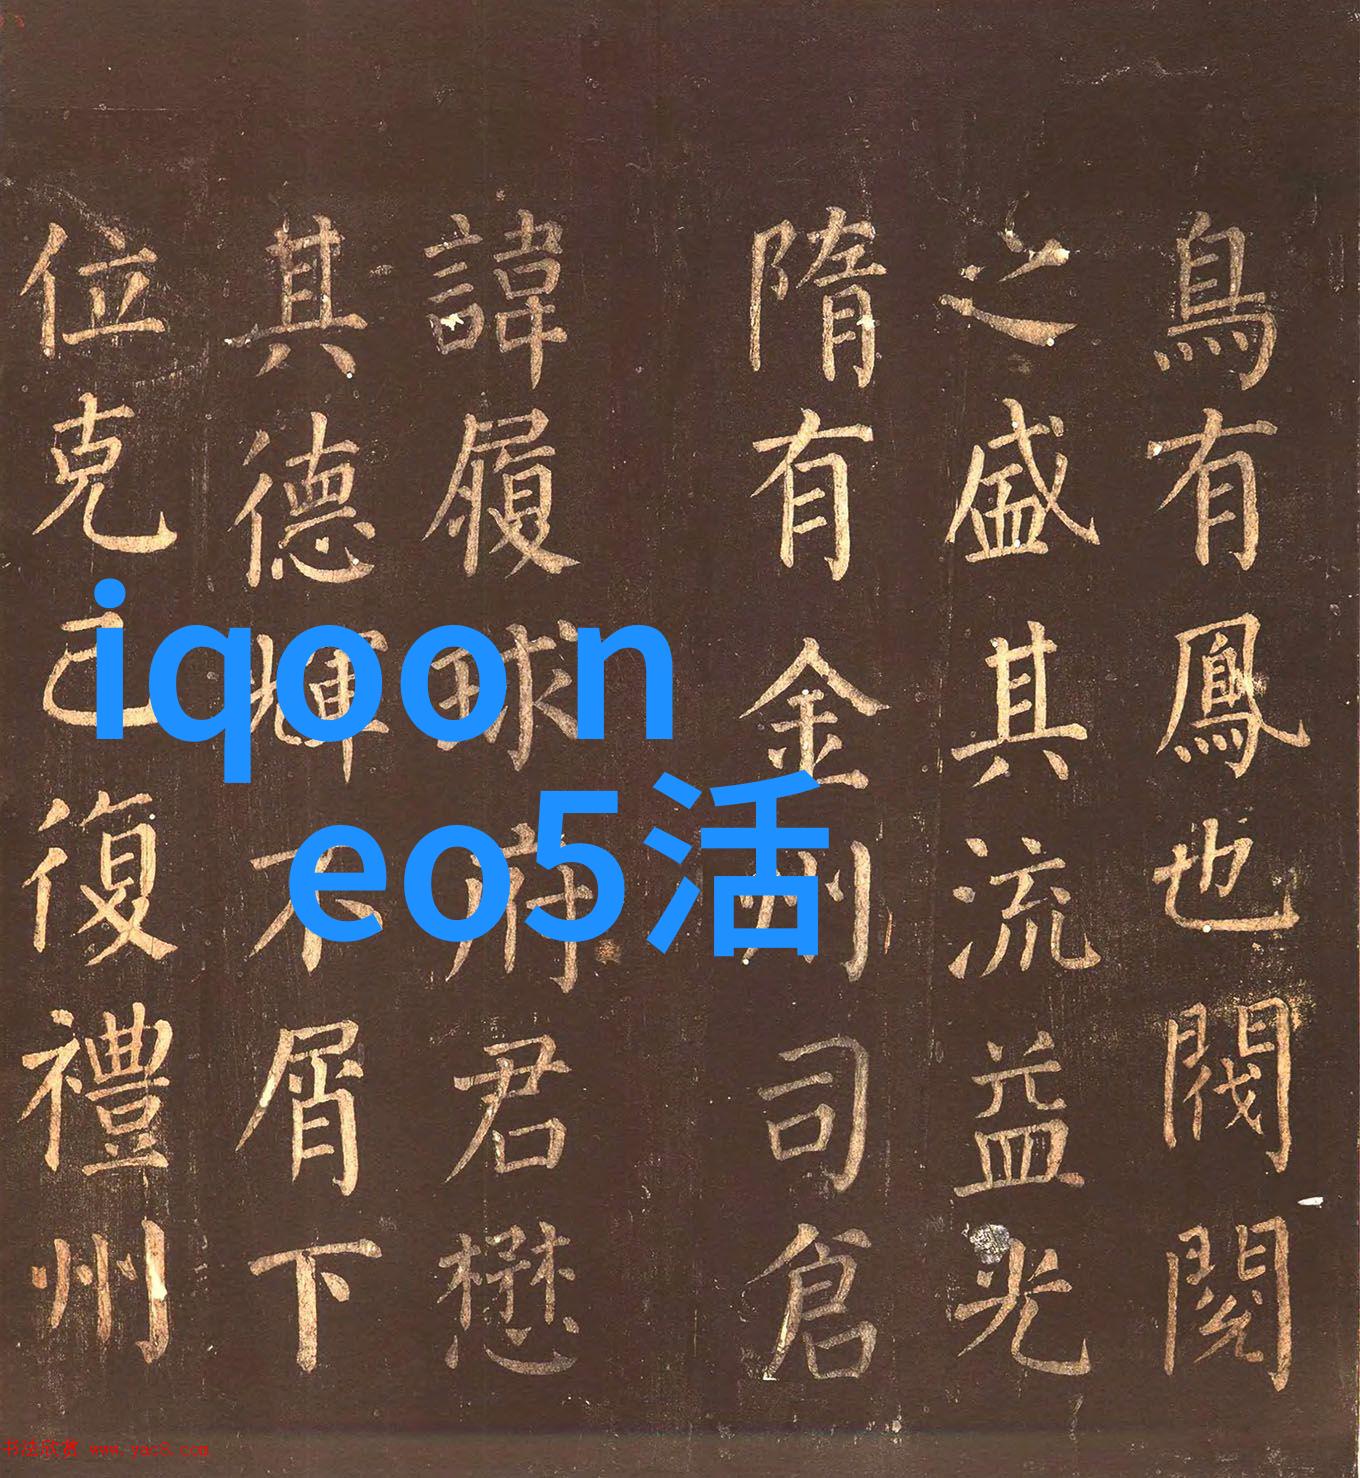 鳥有鳳也閥閱
之盛其流益光
隋有金州司倉
諱履球府君懋
其德輝不屑下
位克己復禮州
iqoo n
eo5活
书法欣赏 www.yac8.com